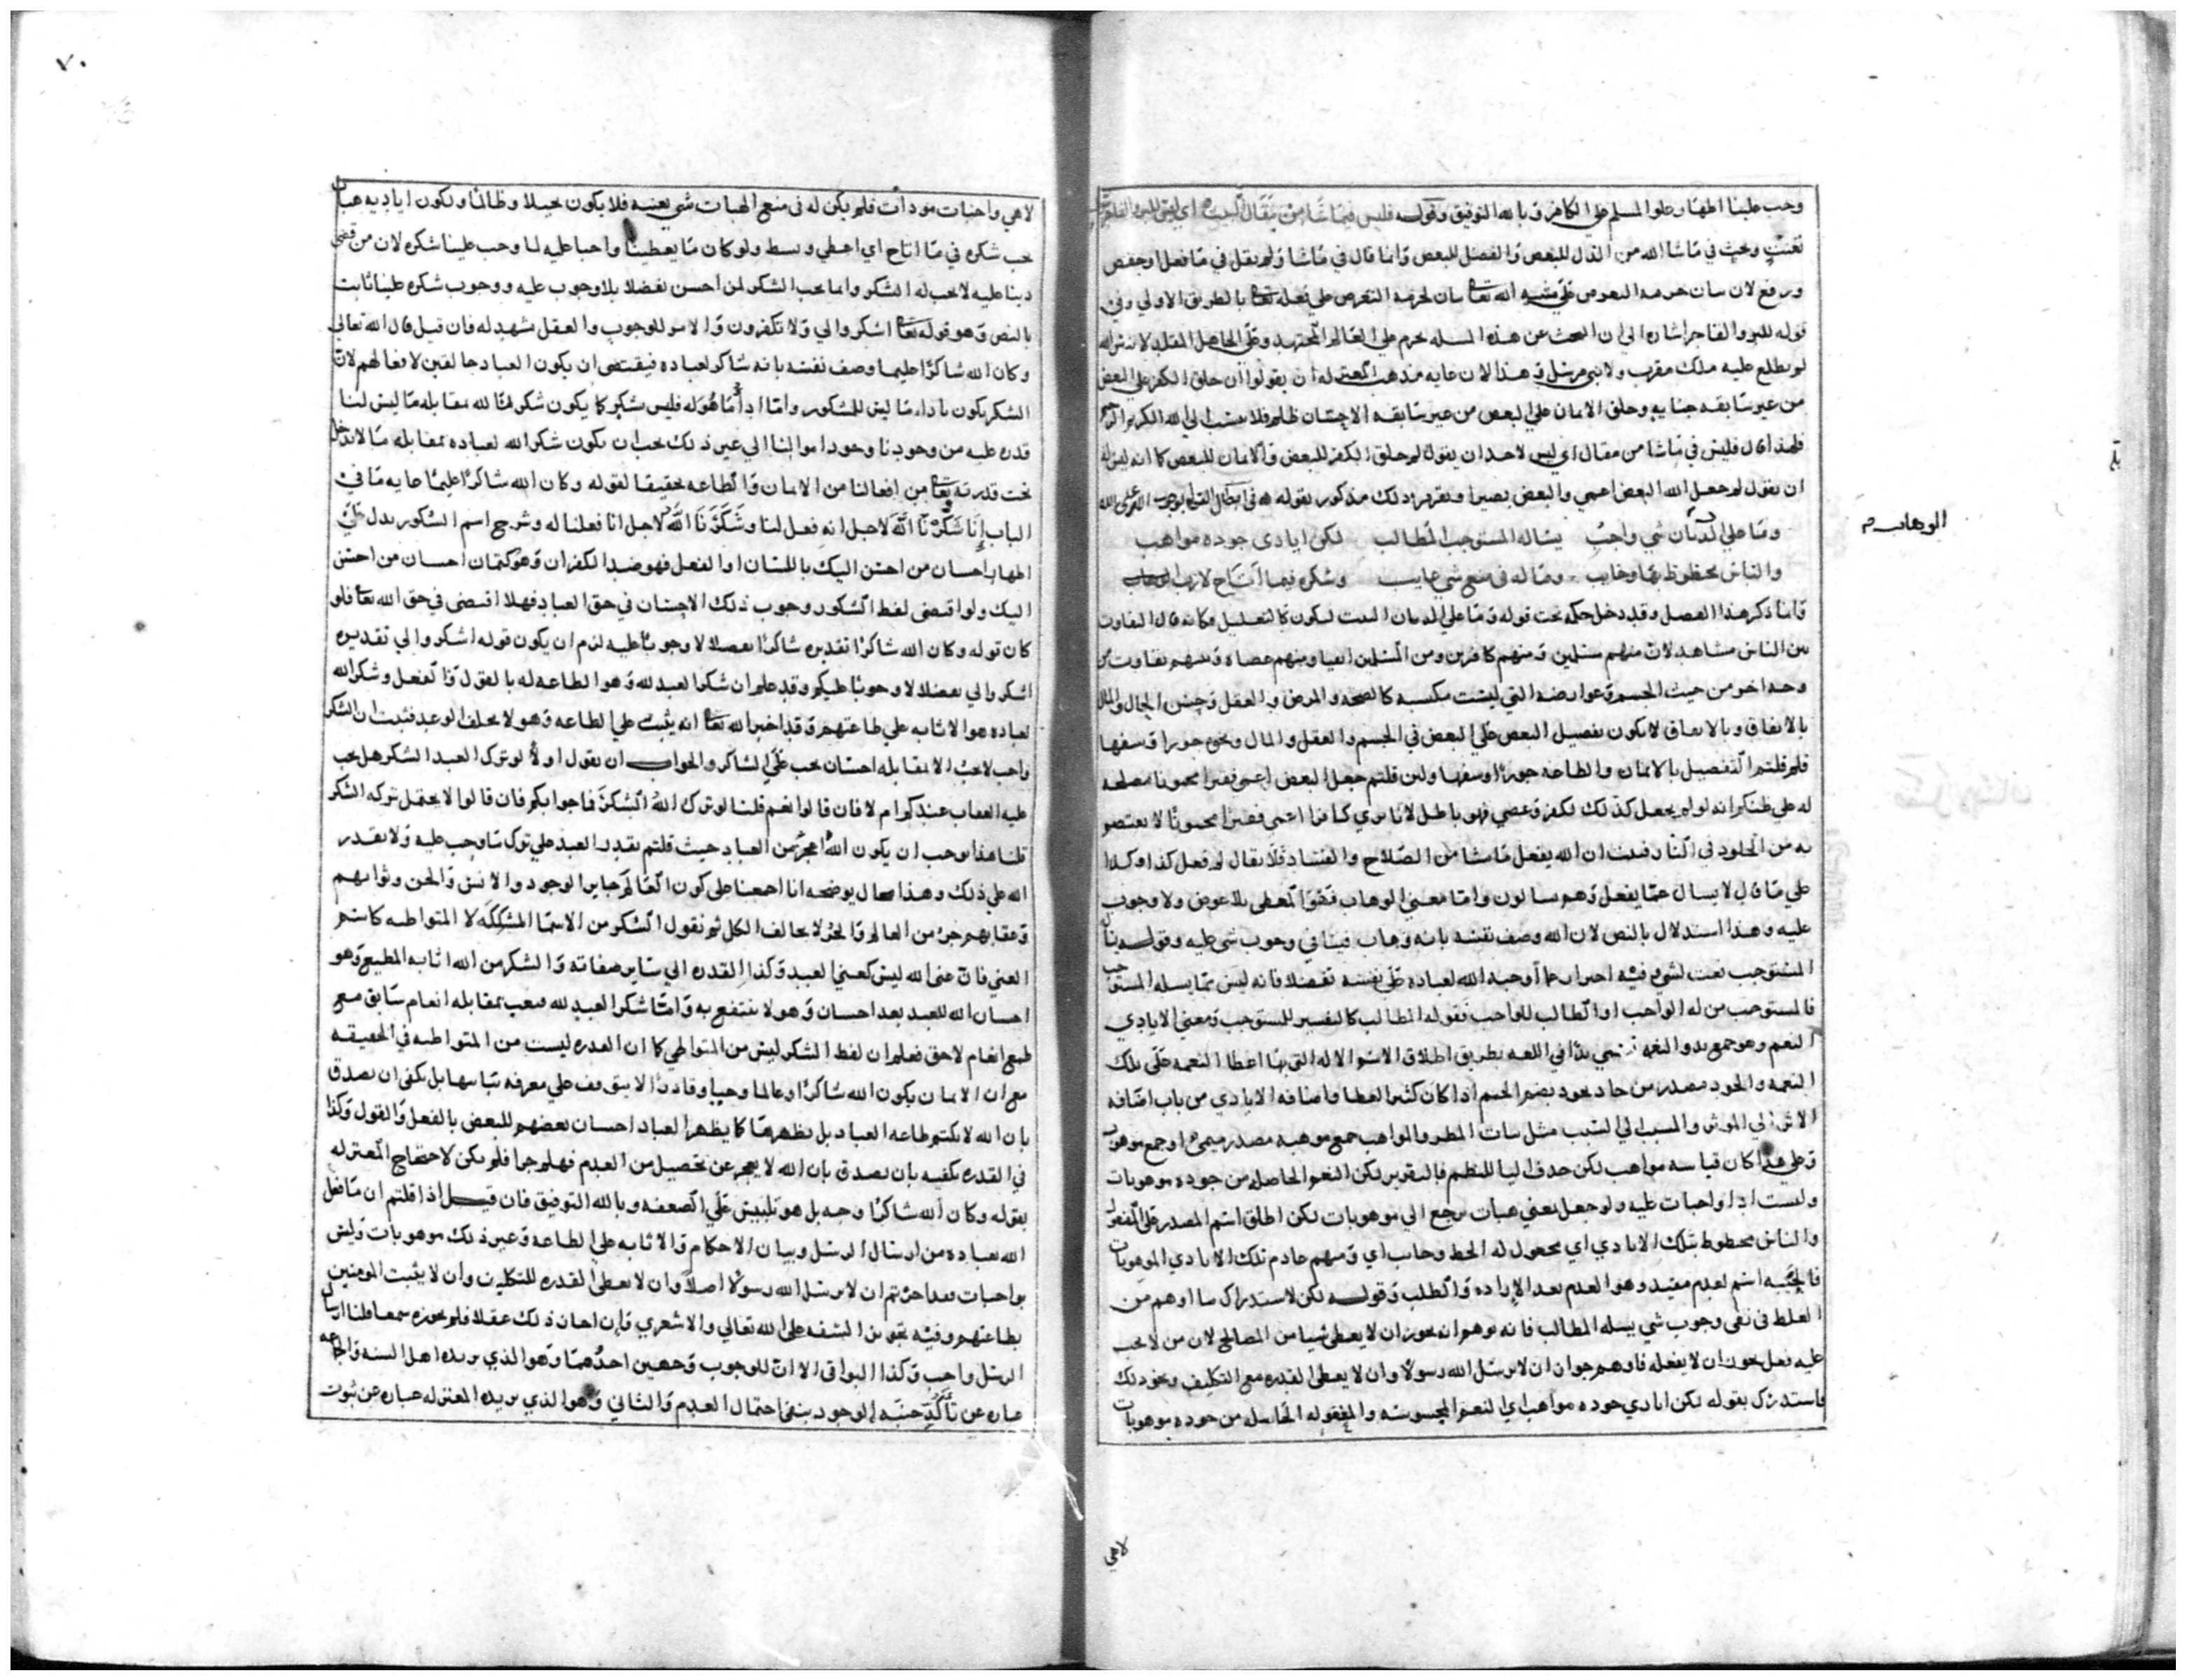 وجب علينا اظهار علو المسلم على الكافر وبالله التوفيق وقوله فليس فيما شا من مقال
تعنت وبحث في ما شا الله من الذل للبعض والفضل للبعض وانما قال في ما شا ولم يقل في ما فعل
ورفع لان بيان حرمة الله تعا بيان لحرمة التعرض على فعله تعا بالطريق الاولى وفي
قوله للبر والفاجر اشاره الى ان البحث عن هذه المسله يحرم على العالم المجتهد وعلى الجاهل المقلد لانه سر الله
لم يطلع عليه ملك مقرب ولا نبي مرسل وهذا لان غايه مذهب المعتزله ان يقولوا ان خلق الكفر على البعض
من غير سابقه جنايه وخلق الايمان على البعض من غير سابقه الاحسان ظلم فلا ينسب الى الله الكريم
فلهذا قال فليس في ما شا من مقال اي ليس لاحد ان يقول لم خلق الكفر للبعض والايمان للبعض كما انه ليس له
ان يقول لم جعل الله البعض اعمى والبعض بصيرا وتقرير ذلك مذكور بقوله
وما على الديان شي واجب يساله المستوجب المطالب لكن ايادي جوده مواهب
والناس محظوظ بها وخايب وما له في منع شي عايب وشكره فيما اتاح لازب
الوهاب
وانما ذكر هذا الفصل وقد دخل حكمه تحت قوله وما على الديان البيت ليكون كالتعليل فكانه قال التفاوت
بين الناس مشاهد لان منهم مسلمين ومنهم كافرين ومن المسلمين اتقيا ومنهم عصاه وبينهم تفاوت من
وجه اخر من حيث الجسم وعوارضه التي ليست مكسبه كالصحه والمرض والعقل وحسن الجمال والمال
بالاتفاق وبالاتفاق لا يكون تفضيل البعض على البعض في الجسم والعقل والمال ونحوه جورا وسفها
فلم قلتم التفضيل بالايمان والطاعه جورا وسفها ولين قلتم جعل البعض اعمى فقيرا مجنونا مصلحه
له على ظنكم انه لو لم يجعل كذلك لكفر وعصى فهو باطل لانا نرى كافرا اعمى فقيرا مجنونا لا يعتصم
به من الخلود في النار فثبت ان الله يفعل ما يشا من الصلاح والفساد فلا يقال لم فعل كذا وكذا
على ما قال لا يسال عما يفعل وهم يسالون واما معنى الوهاب فهو المعطي بلا عوض ولا وجوب
عليه وهذا استدلال بالنص لان الله وصف نفسه بانه وهاب فينافي وجوب شي عليه وقوله يساله
المستوجب نعت لشي وفيه احتراز عما اوجبه الله لعباده على نفسه تفضلا فانه ليس مما يسله المستوجب
فالمستوجب من له الواجب او الطالب للواجب فقوله المطالب كالتفسير للمستوجب ومعنى الايادي
النعم وهو جمع يد والنعمه تسمى يدا في اللغه بطريق اطلاق الاسم الاله التي بها اعطا النعمه على تلك
النعمه والجود مصدر من جاد يجود بضم الجيم اذا كان كثير العطا واضافه الايادي من باب اضافه
الاثر الى الموثر والمسبب الى السبب مثل نبات المطر والمواهب جمع موهبه مصدر ميمي او جمع موهوب
وعلى هذا كان قياسه مواهيب لكن حذف اليا للنظم فالتقرير لكن النعم الحاصله من جوده موهوبات
وليست اذا واجبات عليه ولو جعل بمعنى هبات يرجع الى موهوبات لكن اطلق اسم المصدر على المفعول
والناس محظوظ بتلك الايادي اي مجعول له الحظ وخايب اي ومنهم عادم تلك الايادي الموهوبات
فالخيبه اسم لعدم مقيد وهو العدم بعد الاراده والطلب وقوله لكن لاستدراك ما اوهم من
الغلط في نفى وجوب شي يسله المطالب فانه يوهم انه يجوز ان لا يعطى شيا من المصالح لان من لا يجب
عليه فعل يجوز ان لا يفعله فاوهم جواز ان لا يرسل الله رسولا وان لا يعطى القدره مع التكليف ونحو ذلك
فاستدرك بقوله لكن ايادي جوده مواهب اي النعم المحسوسه والمعقوله الحاصله من جوده موهوبات
لاهي
٧٠
لاهي واجبات مودات فلم يكن له في منع الهبات شي يعيبه فلا يكون بخيلا وظالما وتكون اياديه هبات
يجب شكره في ما اتاح اي اعطى وبسط ولو كان ما يعطينا واجبا عليه لما وجب علينا شكره لان من قضى
دينا عليه لا يجب له الشكر وانما يجب الشكر لمن احسن تفضلا بلا وجوب عليه ووجوب شكره علينا ثابت
بالنص وهو قوله تعا اشكروا لي ولا تكفرون والامر للوجوب والعقل شهد له فان قيل قال الله تعالى
وكان الله شاكرا عليما وصف نفسه بانه شاكر لعباده فيقتضى ان يكون العباد خالقين لافعالهم لان
الشكر يكون باداء ما ليس للمشكور واما اداء ما هو له فليس شكر كما يكون شكرنا لله بمقابله ما ليس لنا
قدره عليه من وجودنا وجود اموالنا الى غير ذلك يجب ان يكون شكر الله لعباده بمقابله ما لا تدخل
تحت قدرته تعا من افعالنا من الايمان والطاعه تحقيقا لقوله وكان الله شاكرا عليما غايه ما في
الباب انا شكرنا الله لاجل انه فعل لنا وشكرنا الله لاجل انا فعلنا له وشرح اسم الشكور يدل على
اظهار احسان من احسن اليك باللسان او الفعل فهو ضد الكفران وهو كتمان احسان من احسن
اليك ولو اقتضى لفظ الشكور وجوب ذلك الاحسان في حق العباد فهلا اقتضى في حق الله تعا فلو
كان قوله وكان الله شاكرا تقديره شاكرا تفضلا لا وجوبا عليه لزم ان يكون قوله اشكروا لي تقديره
اشكروا لي تفضلا لا وجوبا عليكم وقد علم ان شكر العبد لله وهو الطاعه له بالقول والفعل وشكر الله
لعباده هو الاثابه على طاعتهم وقد اخبر الله تعا انه يثيب على الطاعه وهو لا يخلف الوعد فثبت ان الشكر
واجب لا بمقابله احسان يجب على الشاكر والجواب ان نقول اولا لو ترك العبد الشكر هل يجب
عليه العقاب عندكم ام لا فان قالوا نعم قلنا لو ترك الله الشكر فما جوابكم فان قالوا لا يحتمل تركه الشكر
قلنا هذا يوجب ان يكون الله اعجز من العباد حيث قلتم بقدر العبد على ترك ما وجب عليه ولا يقدر
الله على ذلك وهذا محال يوضحه انا اجمعنا على كون العالم جايز الوجود والانس والجن وثوابهم
وعقابهم جزء من العالم والجزء لا يخالف الكل ثم نقول الشكر من الاسما المشككه لا المتواطيه كاسم
الغني فان غنى الله ليس كغنى العبد وكذا القدره الى ساير صفاته والشكر من الله اثابه المطيع وهو
احسان الله للعبد بعد احسان وهو لا ينتفع به واما شكر العبد لله فيجب بمقابله انعام سابق مع
طمع انعام لاحق فعلم ان لفظ الشكر ليس من المتواطي كما ان القدره ليست من المتواطيه في الحقيقه
مع ان الايمان بكون الله شاكرا وعالما وحيا وقادرا لا يتوقف على معرفه بل يكفى ان يصدق
بان الله لا يكتم طاعه العباد بل يظهرها كما يظهر العباد احسان بعضهم للبعض بالفعل والقول وكذا
في القدره يكفيه بان يصدق بان الله لا يعجز عن تحصيل من العدم فهلم جرا فلم يكن لاحتجاج المعتزله
بقوله وكان الله شاكرا وجه بل هو تلبيس على الضعفه وبالله التوفيق فان قيل اذا قلتم ان ما فعل
الله بعباده من ارسال الرسل وبيان الاحكام والاثابه على الطاعه وغير ذلك موهوبات وليس
بواجبات فقد اجزتم ان لا يرسل الله رسولا اصلا وان لا يعطى القدره للتكليف وان لا يثيب المومنين
بطاعتهم وفيه تجويز السفه على الله تعالى والاشعرى وان اجاز ذلك عقلا فلم يجوزه قلنا ارسال
الرسل واجب وكذا البواقى الا ان للوجوب وجهين احدهما وهو الذي يريده اهل السنه والجماعه
عباره عن تاكد جنبه الوجود بنفى احتمال العدم والثاني وهو الذي يريده المعتزله عباره عن ثبوت